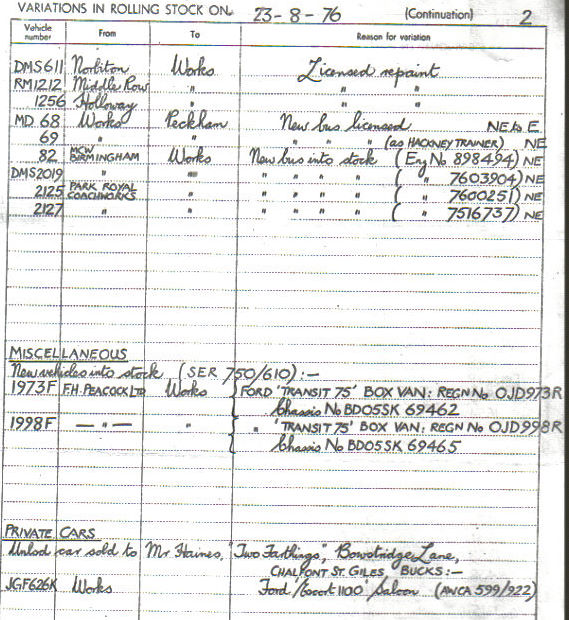 VARIATIONS IN ROLLING STOCK ON 23-8-76 (Continuation) 2
Vehicle number From To Reason for variation
DMS611 Norbiton Works Licensed repaint
RM1212 Middle Row " " "
1256 Holloway " " "
MD 68 Works Peckham New bus licensed NE to E
69 " " " " " (as HACKNEY TRAINER) NE
82 MCW BIRMINGHAM Works New bus into stock (Eng No 898494) NE
DMS2019 " " " " " " ( " 7603904) NE
2125 PARK ROYAL COACHWORKS " " " " " ( " 7600251) NE
2127 " " " " " " ( " 7516737) NE
MISCELLANEOUS
New vehicles into stock (SER 750/610):-
1973F F.H. PEACOCK LTD Works FORD 'TRANSIT 75' BOX VAN: REGN No OJD973R
Chassis No BD05SK 69462
1998F — " — " " 'TRANSIT 75' BOX VAN: REGN No OJD998R
Chassis No BD05SK 69465
PRIVATE CARS
Unlsd car sold to Mr Haines, "Two Farthings," Bowstridge Lane,
CHALFONT ST. GILES BUCKS:-
JGF626K Works Ford 'Escort 1100' Saloon (AWCA 599/922)